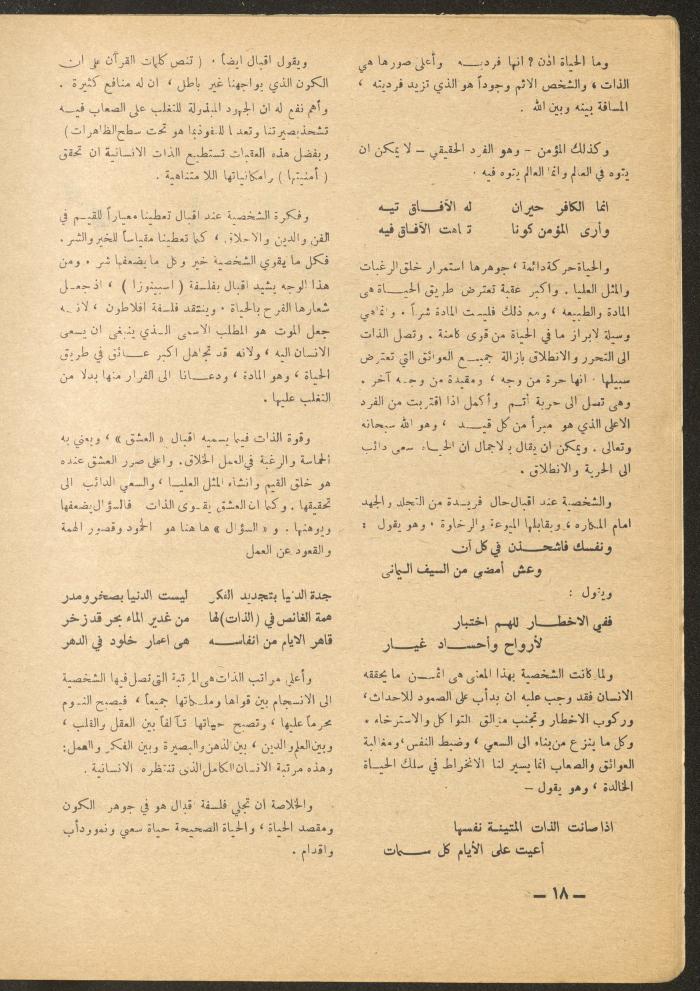 وما الحياة اذن ؟ انها فرديـــه وأعلى صورها هي
الذات ، والشخص الاتم وجوداً هو الذي تزيد فرديته ،
المسافة بينه وبين الله .
وكذلك المؤمن – وهو الفرد الحقيقي – لا يمكن ان
يتوه في العالم وانما العالم يتوه فيه .
انما الكافر حيران له الآفــاق تيــه
وأرى المؤمن كونا تاهت الآفاق فيه
والحياة حركة دائمة ، جوهرها استمرار خلق الرغبات
والمثل العليا . واكبر عقبة تعترض طريق الحيــاة هى
المادة والطبيعه ، ومع ذلك فليست المادة شراً . وانما هي
وسيلة لابراز ما في الحياة من قوى كامنة . وتصل الذات
الى التحرر والانطلاق بازالة جميــع العوائق التي تعترض
سبيلها . انها حرة من وجه ، ومقيدة من وجــه آخر .
وهى تصل الى حرية أتــم وأكمل اذا اقتربت من الفرد
الاعلى الذي هو مبرأ من كل قيــد ، وهو الله سبحانه
وتعالى . ويمكن ان يقال بالاجمال ان الحيــاة سعى دائب
الى الحرية والانطلاق .
والشخصية عند اقبال حال فريدة من التجلد والجهد
امام المكاره ، ويقابلها الميوعة والرخاوة . وهو يقول :
ونفسك فاشحـــذن في كل آن
وعش أمضي من السيف اليمانى
ويقول :
ففي الاخطـــار للهم اختبار
لأرواح وأجســاد غيــار
ولما كانت الشخصية بهذا المعنى هى اثمــن ما يحققه
الانسان فقد وجب عليه ان يدأب على الصمود للاحداث ،
وركوب الاخطار وتجنب مزالق التواكل والاسترخاء .
وكل ما ينزع من بناء الى السعي ، وضبط النفس ، ومغالبة
العوائق والصعاب انما يسير لنا الانخراط في سلك الحيــاة
الخالدة ، وهو يقول –
اذا صانت الذات المتينــة نفسها
أعيت على الأيام كل ســـمات
ويقول اقبال ايضاً . ( تنص كلمات القرآن على ان
الكون الذي يواجهنا غير باطل ، ان له منافع كثيرة .
وأهم نفع له ان الجهود المبذولة للتغلب على الصعاب فيــه
تشحذ بصيرتنا وتعدنا للنفوذ بما هو تحت سطح الظاهرات )
وبفضل هذه العقبات تستطيع الذات الانسانية ان تحقق
( أمنيتها ) وامكانياتها اللا متناهية .
وفكرة الشخصية عند اقبال تعطينا معياراً للقيــم في
الفن والدين والاخلاق ، كما تعطينا مقياساً للخير والشر .
فكل ما يقوي الشخصية خير وكل ما يضعفها شر . ومن
هذا الوجه يشيد اقبال بفلسفة ( اسبينوزا ) ، اذ جعــل
شعارها الفرح بالحياة . وينتقد فلسفة افلاطون ، لانــه
جعل الموت هو المطلب الاسمى الــذي ينبغى ان يسعى
الانسان اليه ، ولانه قد تجاهل اكبر عــائق في طريق
الحياة ، وهو المادة ، ودعــانا الى الفرار منها بدلا من
التغلب عليها .
وقوة الذات فيما يسميه اقبال « العشق » ، ويعني به
الحماسة والرغبة في العمل الخلاق . واعلى صور العشق عنده
هو خلق القيم وانشاء المثل العليــا ، والسعي الدائب الى
تحقيقها . وكما ان العشق يقــوى الذات فالسؤال يضعفها
ويوهنها . و « السؤال » ها هنا هو الخمود وقصور الهمة
والقعود عن العمل
جدة الدنيا بتجديد الفكر ليست الدنيا بصخر ومدر
همة الغائص في (الذات) لها من غدير الماء بحر قد زخر
قاهر الايام من انفاســه هى اعمار خلود في الدهر
وأعلى مراتب الذات هى المرتبة التى تصل فيها الشخصية
الى الانسجام بين قواها وملــكاتها جميعاً ، فيصبح النــوم
محرماً عليها ، وتصبح حياتها تــآلفاً بين العقل والقلب ،
وبين العلم والدين ، بين الذهن والبصيرة وبين الفكر والعمل :
وهذه مرتبة الانسان الكامل الذى تنتظره الانسانية .
والخلاصة ان تجلي فلسفة اقبال هو في جوهر الكون
ومقصد الحياة ، والحياة الصحيحة حياة سعي ودأب
واقدام .
– ١٨ –